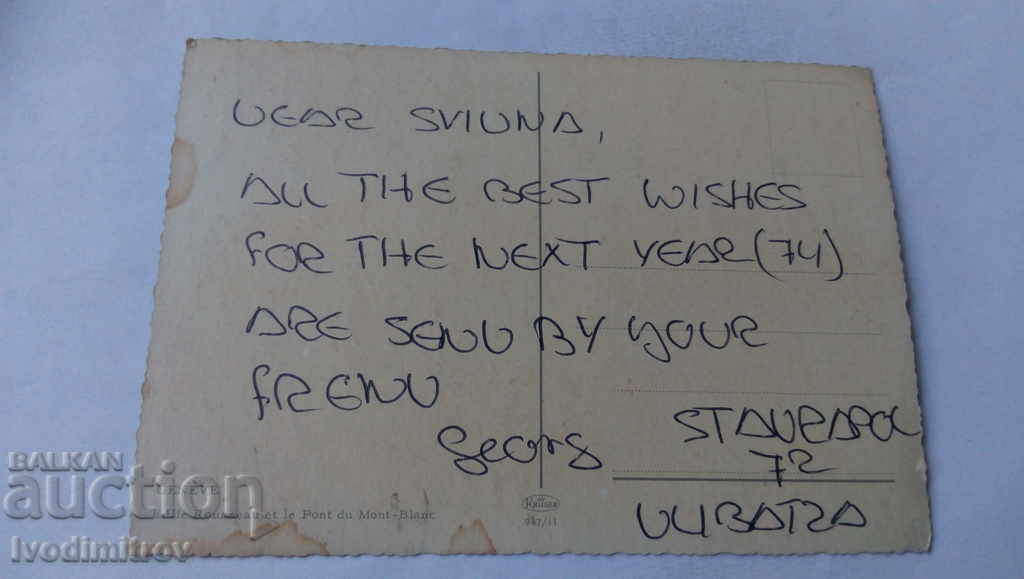 DEAR SVIUNA,
ALL THE BEST WISHES
FOR THE NEXT YEAR (74)
ARE SEND BY YOUR
FREND
Georg
STAURAPOL
72
GENÈVE
L'Ile Rousseau et le Pont du Mont-Blanc
987/11
BALKAN
auction
Ivodimitrov